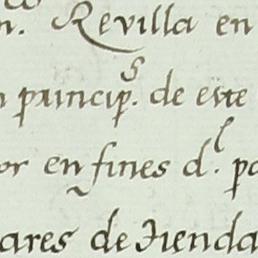 n. Revilla en
principˢ. de este
or en fines dˡ. po
ares de tienda